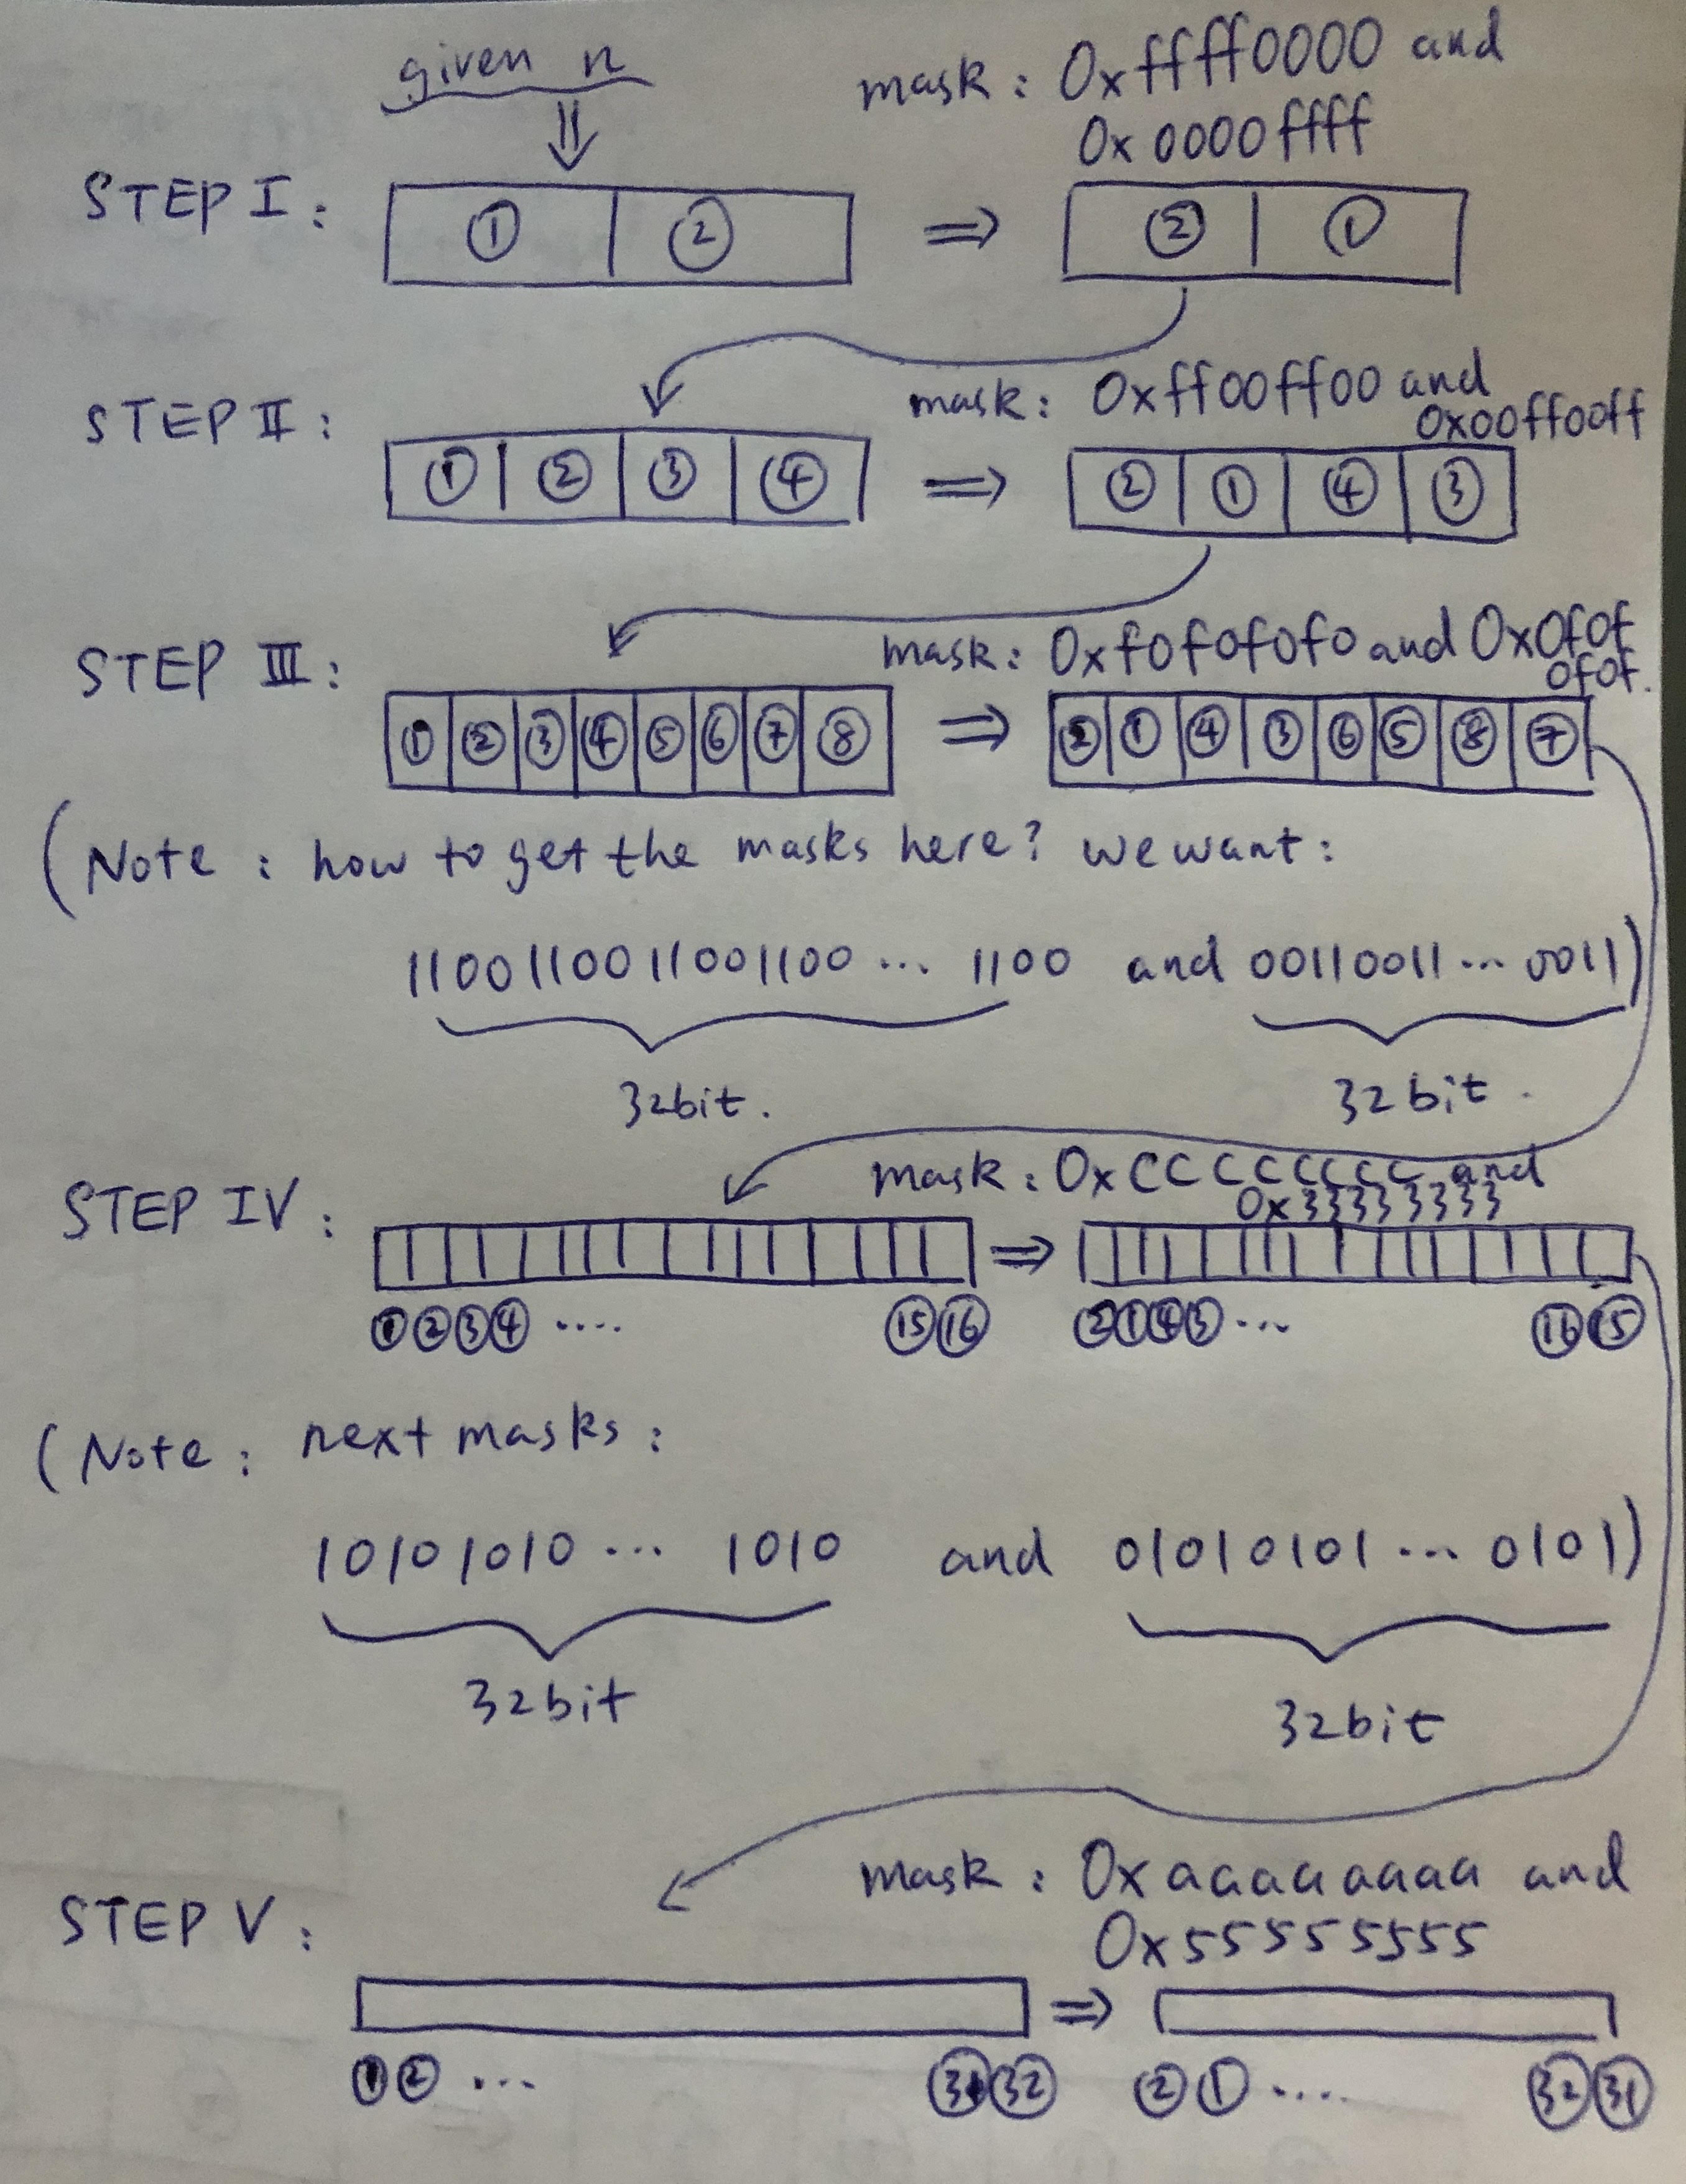 given n
mask : 0xffff0000 and
0x0000ffff
STEP I :
① ② ⇒ ② ①
mask : 0xff00ff00 and
0x00ff00ff
STEP II :
① ② ③ ④ ⇒ ② ① ④ ③
mask : 0xf0f0f0f0 and 0x0f0f
0f0f.
STEP III :
① ② ③ ④ ⑤ ⑥ ⑦ ⑧ ⇒ ② ① ④ ③ ⑥ ⑤ ⑧ ⑦
(Note : how to get the masks here? we want :
1100110011001100 ... 1100 and 00110011 ... 0011)
32bit. 32bit.
mask : 0xcccccccc and
0x33333333
STEP IV :
⇒
① ② ③ ④ .... ⑮ ⑯ ② ① ④ ③ ... ⑯ ⑮
(Note : next masks :
10101010 ... 1010 and 01010101 ... 0101)
32bit 32bit
mask : 0xaaaaaaaa and
0x55555555
STEP V :
⇒
① ② ... ㉛ ㉜ ② ① .... ㉜ ㉛